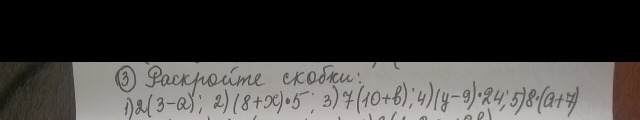 ③ Раскройте скобки:
1) 2(3-a); 2) (8+x)•5; 3) 7(10+в); 4) (y-9)•24; 5) 8•(a+7)